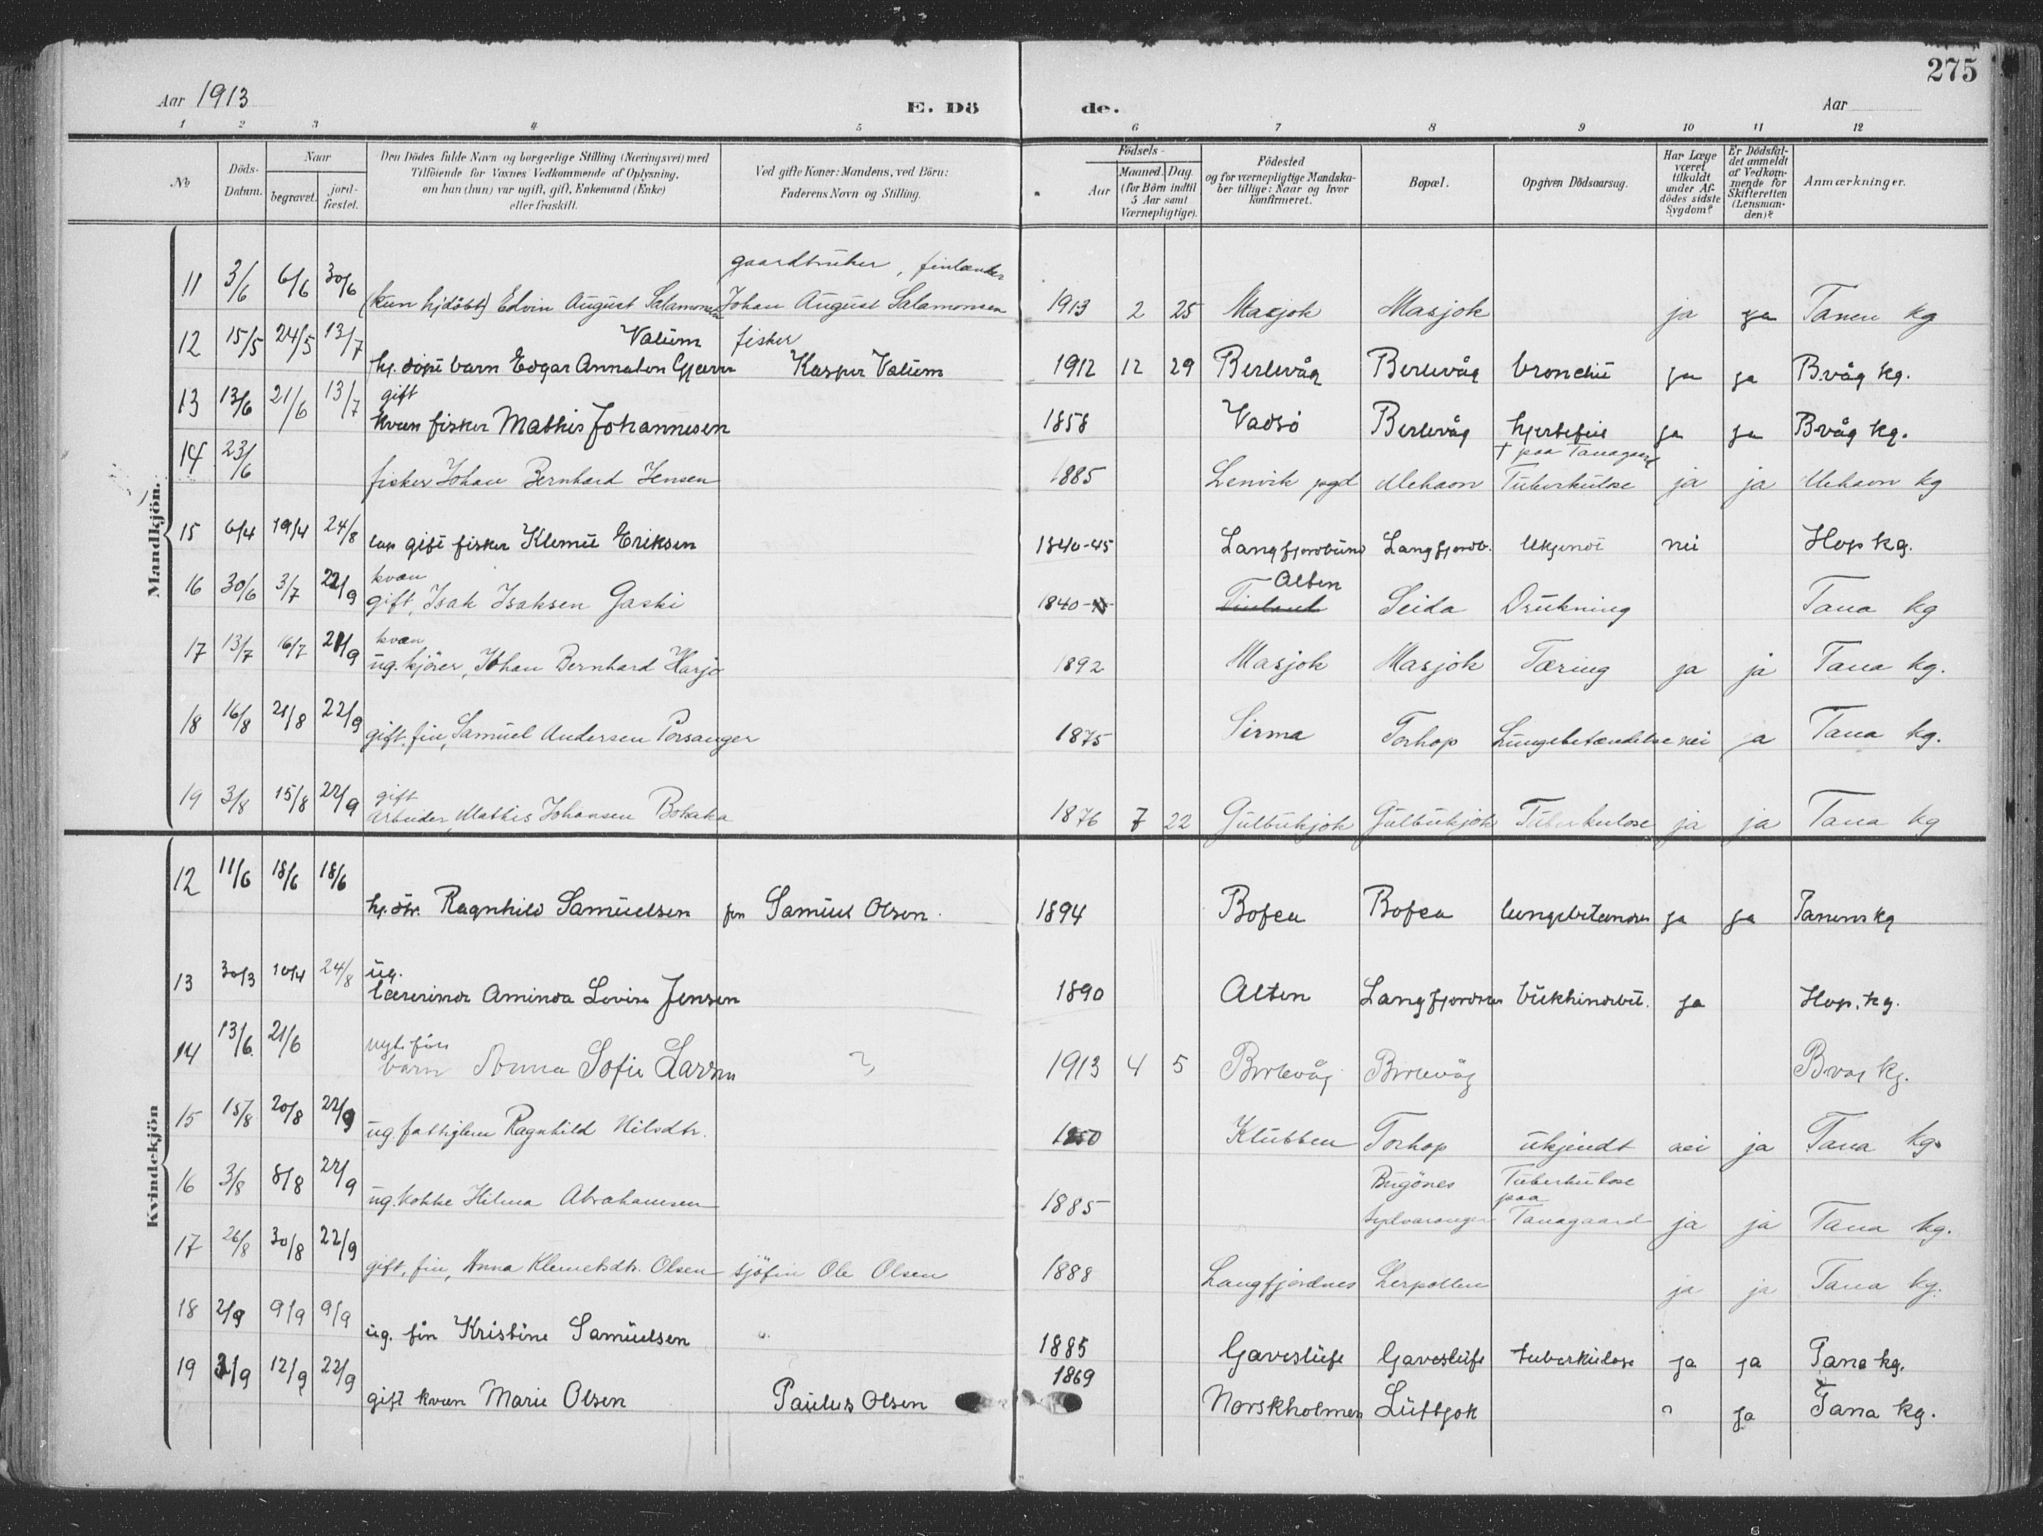 275
Aar 1913 E. Dö de. Aar
1 2 3 4 5 6 7 8 9 10 11 12
No
Döds-Datum.
Naar
begravet. jord-fæstet.
Den Dödes fulde Navn og borgerlige Stilling (Næringsvei) med
Tilföiende for Voxnes Vedkommende af Oplysning,
om han (hun) var ugift, gift, Enkemand (Enke)
eller fraskilt.
Ved gifte Koner: Mandens, ved Börn:
Faderens Navn og Stilling.
Födsels-
Aar Maaned. Dag
(for Börn indtil
5 Aar samt
Værnepligtige).
Födested
og for værnepligtige Mandska-
ber tillige: Naar og hvor
konfirmeret.
Bopæl.
Opgiven Dödsaarsag.
Har Læge
været
tilkaldt
under Af-
dödes sidste
Sygdom?
Er Dödsfal-
det anmeldt
af Vedkom-
mende for
Skifteretten
(Lensman-
den)?
Anmærkninger.
Mandkjön.
gaardbruker, finlænder
11 3/6 6/6 30/6 (kun hjdöbt) Edvin August Salamonsen Johan August Salamonsen 1913 2 25 Masjok Masjok ja ja Tanen kg
Valum fisker
12 15/5 24/5 13/7 hj. döpt barn Edgar Annaton Gjæver Kasper Valum 1912 12 29 Berlevåg Berlevåg bronchit ja ja Bvåg kg.
gift
13 13/6 21/6 13/7 kvæn fisker Mathis Johannesen 1858 Vadsö Berlevåg hjertefeil ja ja Bvåg kg.
† paa Tanagaard
14 23/6 fisker Johan Bernhard Jensen 1885 Lenvik pgd Mehavn Tuberkulose ja ja Mehavn kg
15 6/4 19/4 24/8 lap gift fisker Klemit Eriksen 1840-45 Langfjordbund Langfjordb. Ukjendt nei Hop kg.
kvæn Alten
16 30/6 3/7 22/9 gift, Isak Isaksen Gaski 1840- Finland Seida Drukning Tana kg
kvæn
17 13/7 16/7 21/9 ug. kjörer, Johan Bernhard Harjo 1892 Masjok Masjok Tæring ja ja Tana kg.
18 16/8 21/8 22/9 gift, fin, Samuel Andersen Porsanger 1875 Sirma Torhop Lungebetændelse nei ja Tana kg.
gift
19 3/8 15/8 22/9 arbeider, Mathis Johansen Bohaka 1876 7 22 Gulbukjok Gulbukjok Tuberkulose ja ja Tana kg
Kvindekjön
12 11/6 18/6 18/6 hj. dtr. Ragnhild Samuelsen fin Samuel Olsen. 1894 Bofea Bofea lungebetændes ja ja Tanens kg
ug.
13 30/3 10/4 24/8 lærerinde Aminda Lovise Jensen 1890 Alten Langfjordnes bukhindebet. ja Hop. kg.
nyt. före
14 13/6 21/6 barn Anna Sofie Larsen ? 1913 4 5 Berlevåg Berlevåg Bvag kg.
15 15/8 20/8 22/9 ug. fattiglem Ragnhild Nilsdtr. 1850 Klubben Torhop ukjendt nei ja Tana kg.
Bugönes Tuberkulose
paa
16 3/8 8/8 22/9 ug. kokke Hilma Abrahamsen 1885 Sydvaranger Tanagaard ja ja Tana kg.
17 26/8 30/8 22/9 gift, fin, Anna Klemetsdtr. Olsen sjöfin Ole Olsen 1888 Langfjordnes Lerpollen ja ja Tana kg.
18 2/9 9/9 9/9 ug. fin Kristine Samuelsen 1885 Gavesluft Gavesluft tuberkulose ja ja Tana kg.
19 3/9 12/9 22/9 gift kvæn Marie Olsen Paulus Olsen 1869 Norskholmen Luftjok ? ja Tana kg.